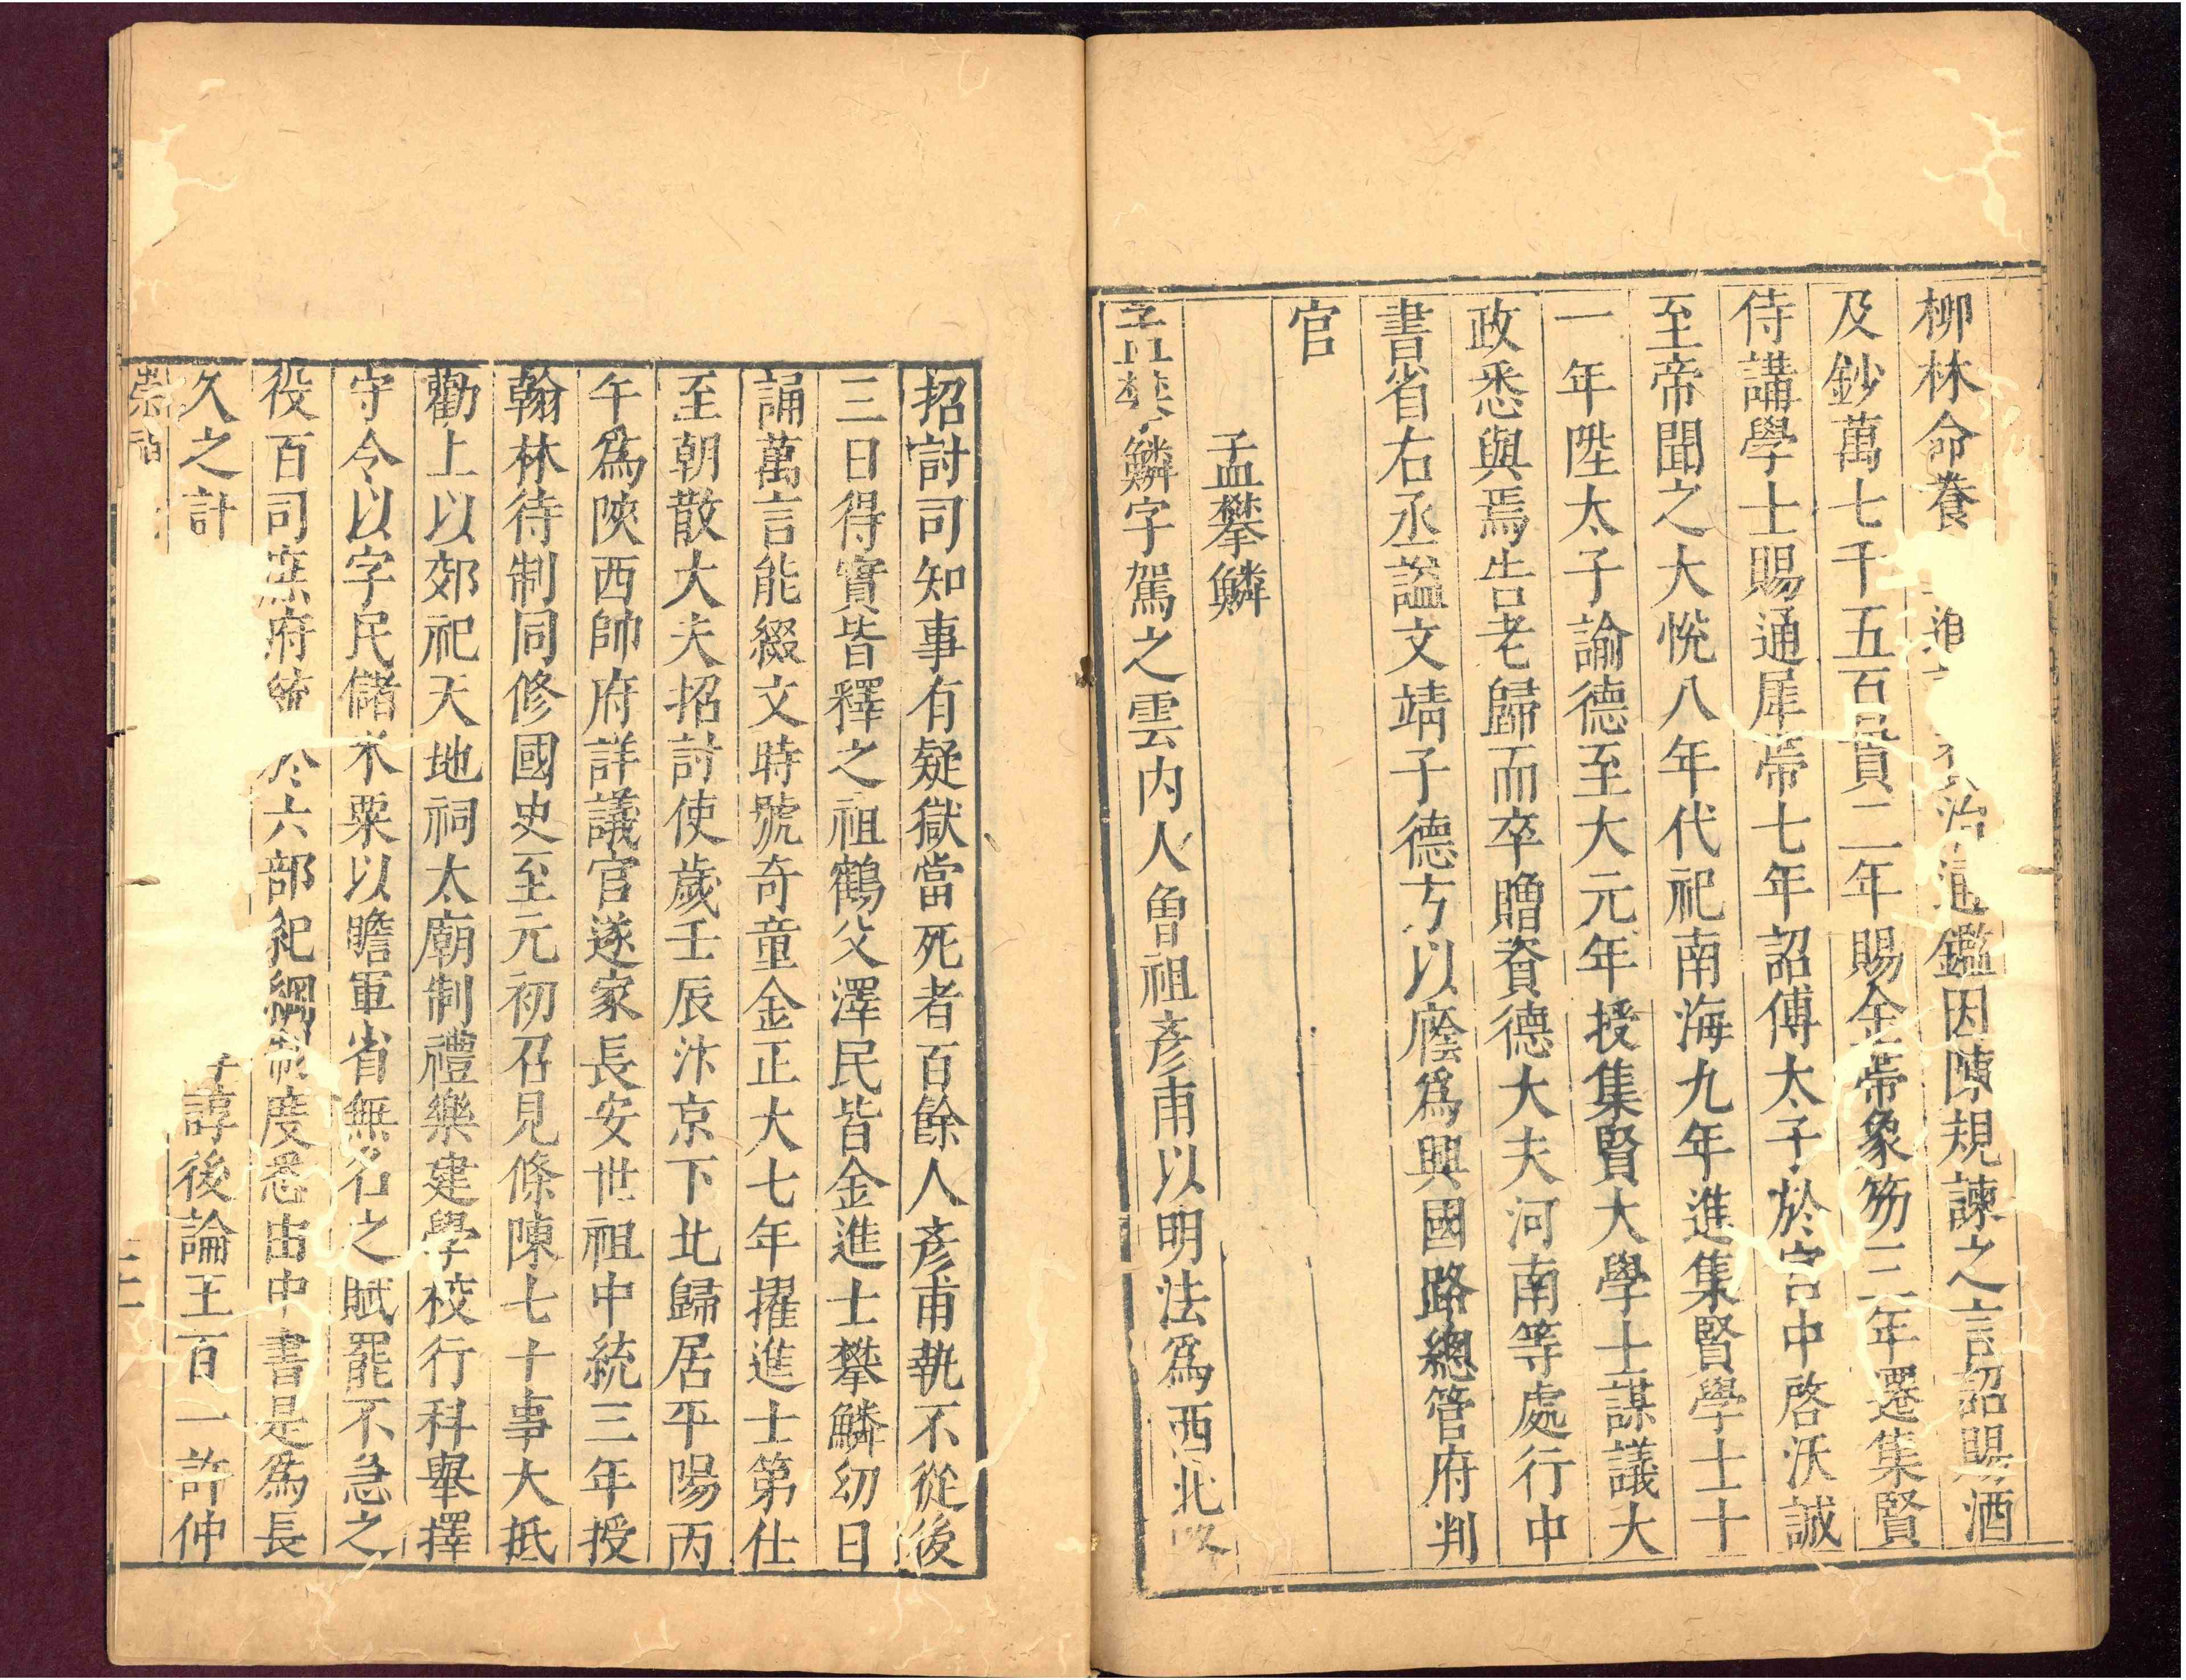 柳林命養治通鑑因陳規諫之言詔賜酒
及鈔萬七千五百貫二年賜金帶象笏三年遷集賢
侍講學士賜通犀帶七年詔傅太子於宮中啓沃誠
至帝聞之大悅八年代祀南海九年進集賢學士十
一年陞太子諭德至大元年授集賢大學士謀議大
政悉與焉告老歸而卒贈資德大夫河南等處行中
書省右丞謚文靖子德方以廕爲興國路總管府判
官
孟攀鱗
孟攀鱗字駕之雲内人曾祖彥甫以明法爲西北路
招討司知事有疑獄當死者百餘人彥甫執不從後
三日得實皆釋之祖鶴父澤民皆金進士攀鱗幼日
誦萬言能綴文時號奇童金正大七年擢進士第仕
至朝散大夫招討使歲壬辰汴京下北歸居平陽丙
午爲陝西帥府詳議官遂家長安世祖中統三年授
翰林待制同修國史至元初召見條陳七十事大抵
勸上以郊祀天地祠太廟制禮樂建學校行科舉擇
守令以字民儲米粟以贍軍省無名之賦罷不急之
役百司庶府統於六部紀綱制度悉由中書是爲長
久之計諄後論王百一許仲